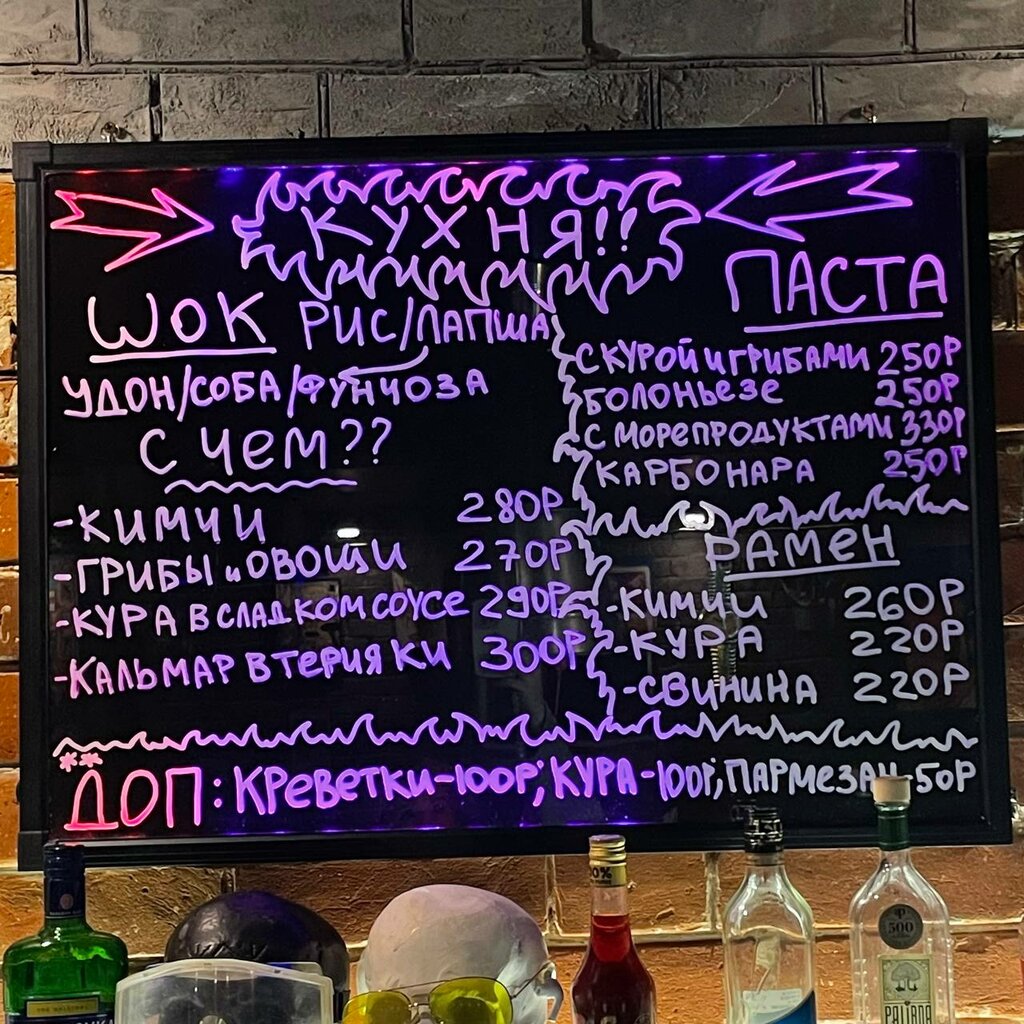 КУХНЯ!!
WОК РИС/ЛАПША
УДОН/СОБА/ФУНЧОЗА
С ЧЕМ??
-КИМЧИ 280Р
-ГРИБЫ и ОВОЩИ 270Р
-КУРА В СЛАДКОМ СОУСЕ 290Р
-КАЛЬМАР В ТЕРИЯКИ 300Р
ПАСТА
С КУРОЙ и ГРИБАМИ 250Р
БОЛОНЬЕЗЕ 250Р
С МОРЕПРОДУКТАМИ 330Р
КАРБОНАРА 250Р
РАМЕН
-КИМЧИ 260Р
-КУРА 220Р
-СВИНИНА 220Р
**ДОП: КРЕВЕТКИ-100Р; КУРА-100Р; ПАРМЕЗАН-50Р
500